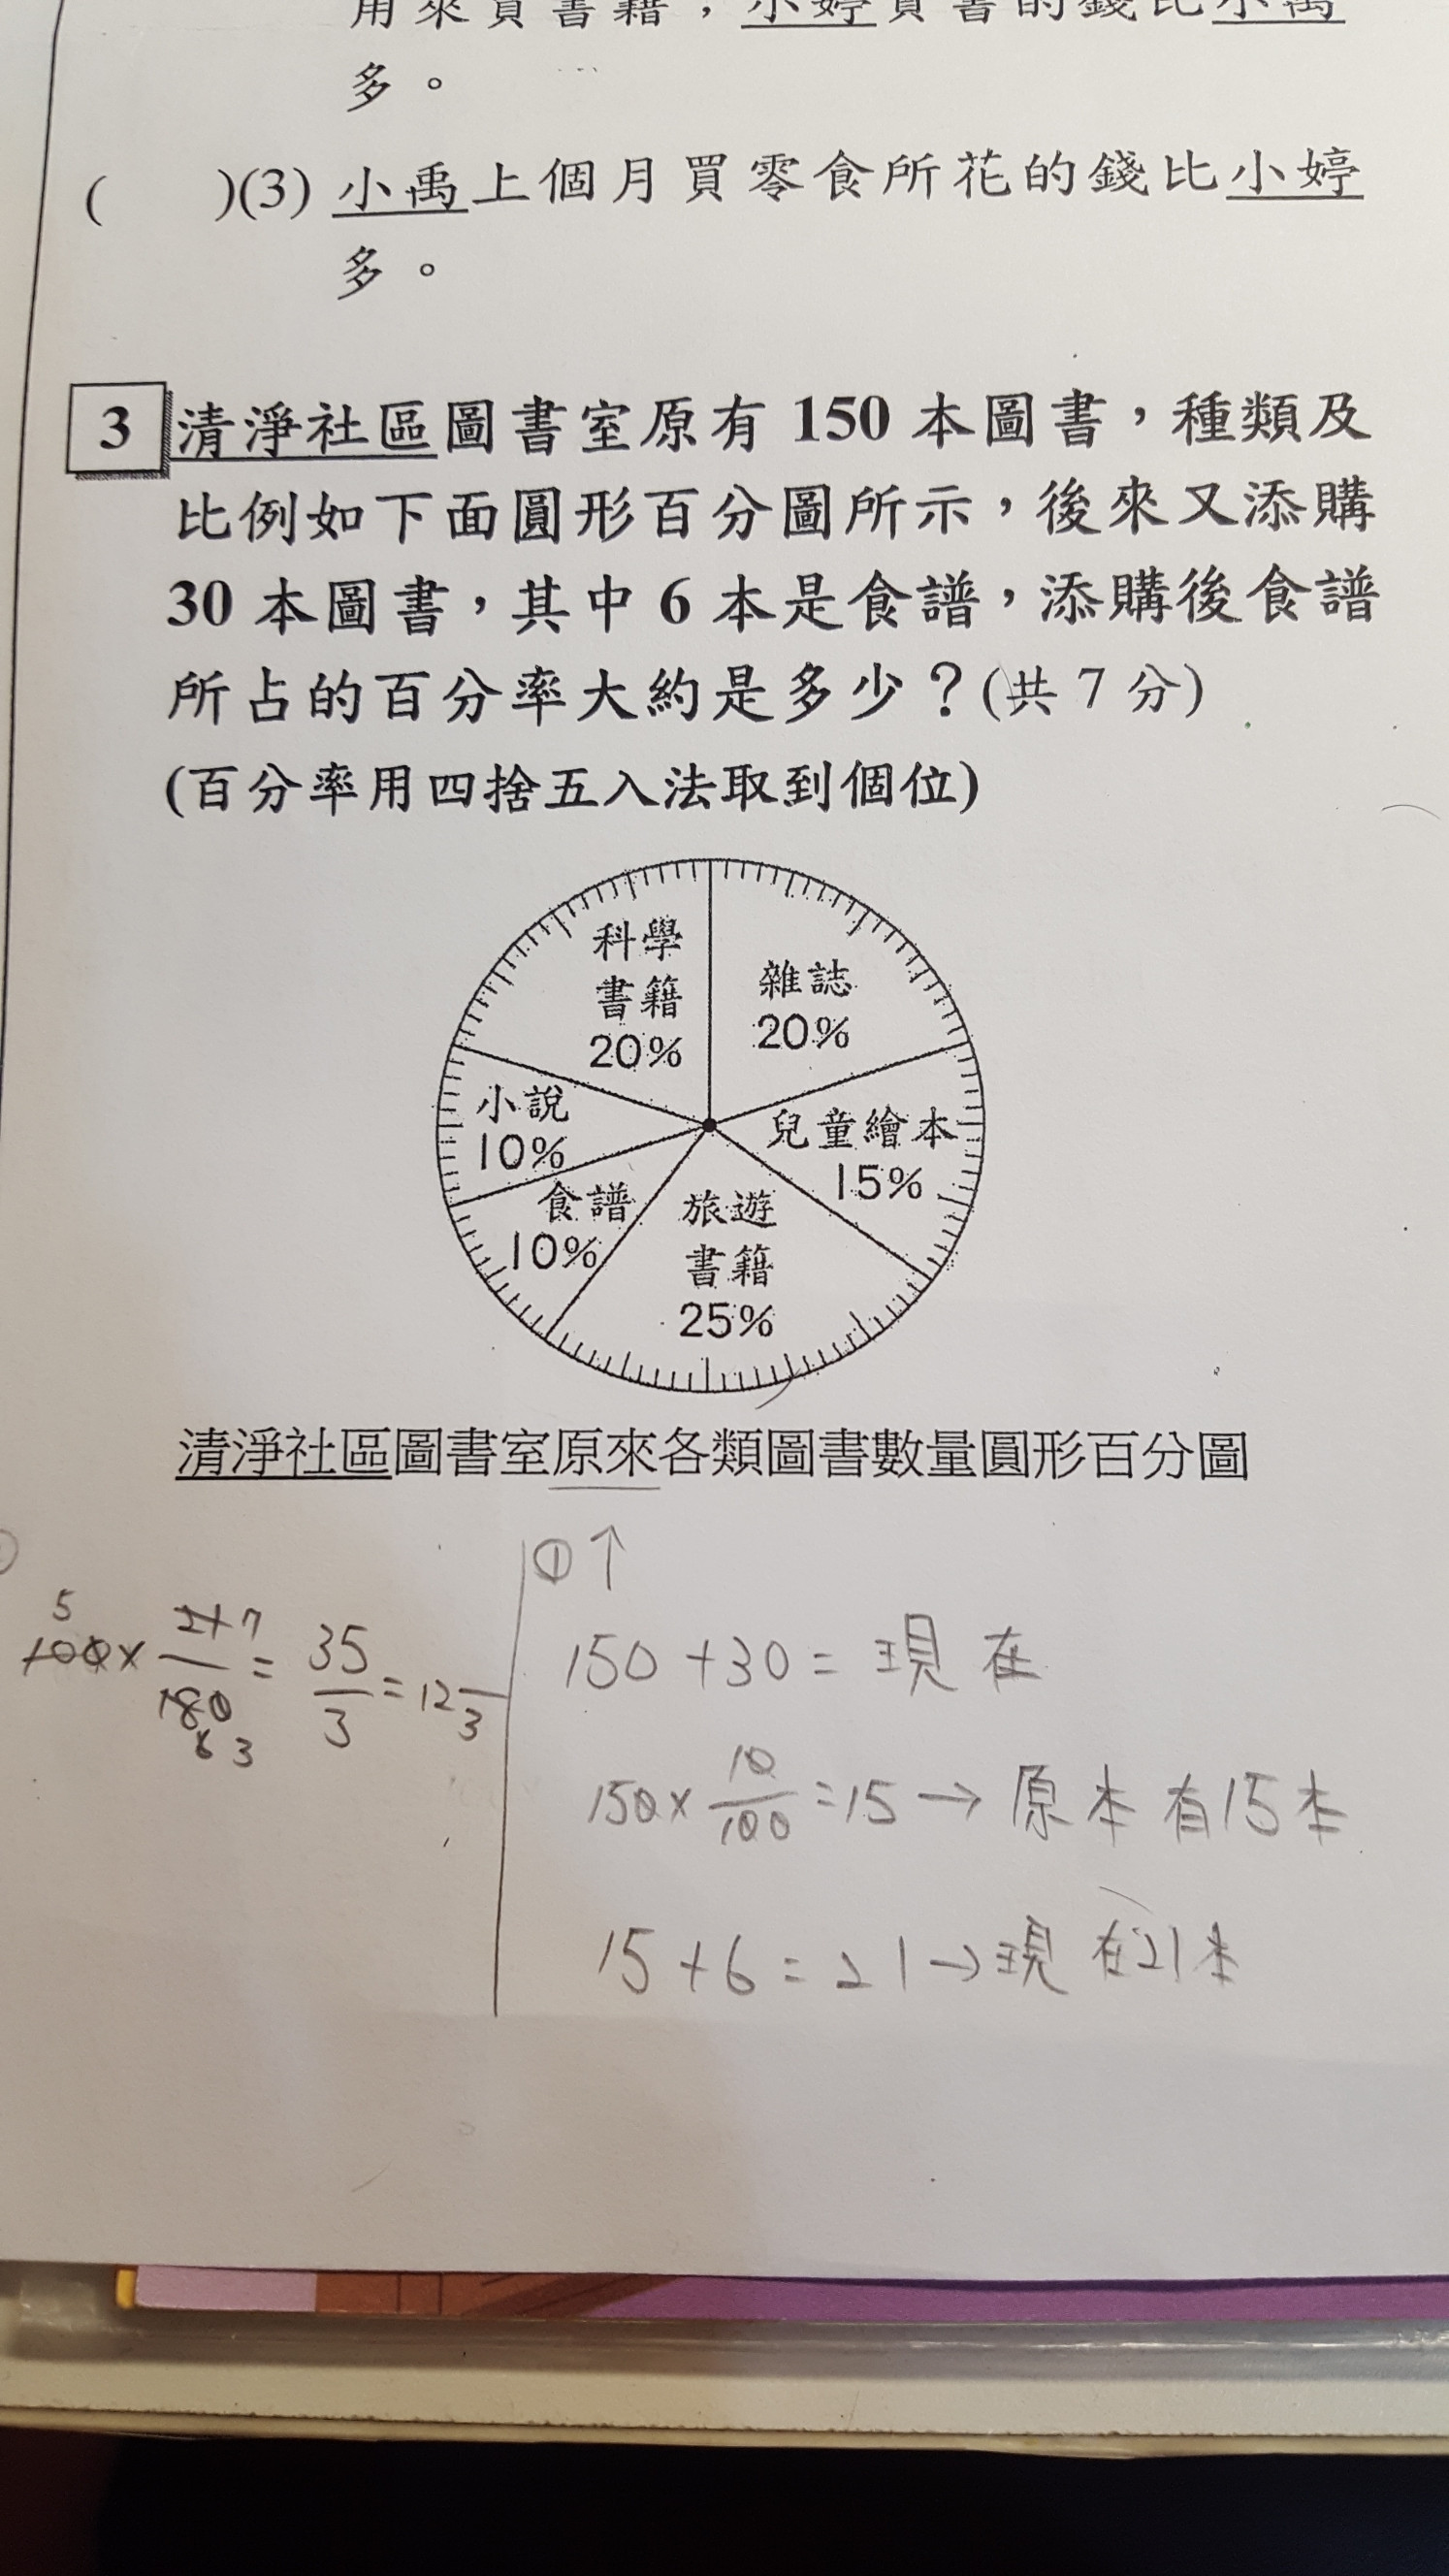 用來買書籍，小婷買書的錢比小禹
多。
(　　)(3) 小禹上個月買零食所花的錢比小婷
多。
3 清淨社區圖書室原有 150 本圖書，種類及
比例如下面圓形百分圖所示，後來又添購
30 本圖書，其中 6 本是食譜，添購後食譜
所占的百分率大約是多少？(共 7 分)
(百分率用四捨五入法取到個位)
科學
書籍
20%
雜誌
20%
小說
10%
兒童繪本
15%
食譜
10%
旅遊
書籍
25%
清淨社區圖書室原來各類圖書數量圓形百分圖
① ↑
5
100× 21 7 / 180 = 35/3 = 12
6 3
3
150+30= 現在
150× 10/100 =15→ 原本有15本
15+6=21→現在21本